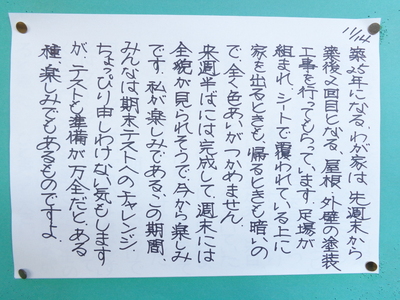 11/14
築25年になる、わが家は、先週末から
築後2回目となる、屋根、外壁の塗装
工事を行ってもらっています。足場が
組まれ、シートで覆われている上に
家を出るときも、帰るときも、暗いの
で、全く色あいがつかめません。
来週半ばには完成して、週末には
全貌が見られそうで、今から楽しみ
です。私が楽しみである、この期間、
みんなは期末テストへのチャレンジ、
ちょっぴり申しわけない気もします
が、テストも準備が万全だと、ある
種、楽しみでもあるものですよ。